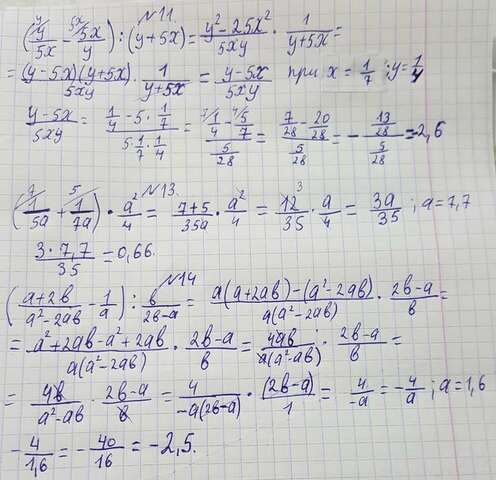 №11.
(y/5x - 5x/y) : (y+5x) = (y²-25x²)/5xy · 1/(y+5x) =
= (y-5x)(y+5x)/5xy · 1/(y+5x) = (y-5x)/5xy при x = 1/7; y = 1/4
(y-5x)/5xy = (1/4 - 5·1/7)/(5·1/7·1/4) = (1/4 - 5/7)/(5/28) = (7/28 - 20/28)/(5/28) = -(13/28)/(5/28) = -2,6
№13.
(1/5a + 1/7a) · a²/4 = (7+5)/35a · a²/4 = 12/35 · a/4 = 3a/35; a=7,7
3·7,7/35 = 0,66.
№14
((a+2b)/(a²-2ab) - 1/a) : b/(2b-a) = (a(a+2ab)-(a²-2ab))/(a(a²-2ab)) · (2b-a)/b =
= (a²+2ab-a²+2ab)/(a(a²-2ab)) · (2b-a)/b = 4ab/(a(a²-ab)) · (2b-a)/b =
= 4b/(a²-ab) · (2b-a)/b = 4/(-a(2b-a)) · (2b-a)/1 = 4/-a = -4/a; a=1,6
-4/1,6 = -40/16 = -2,5.